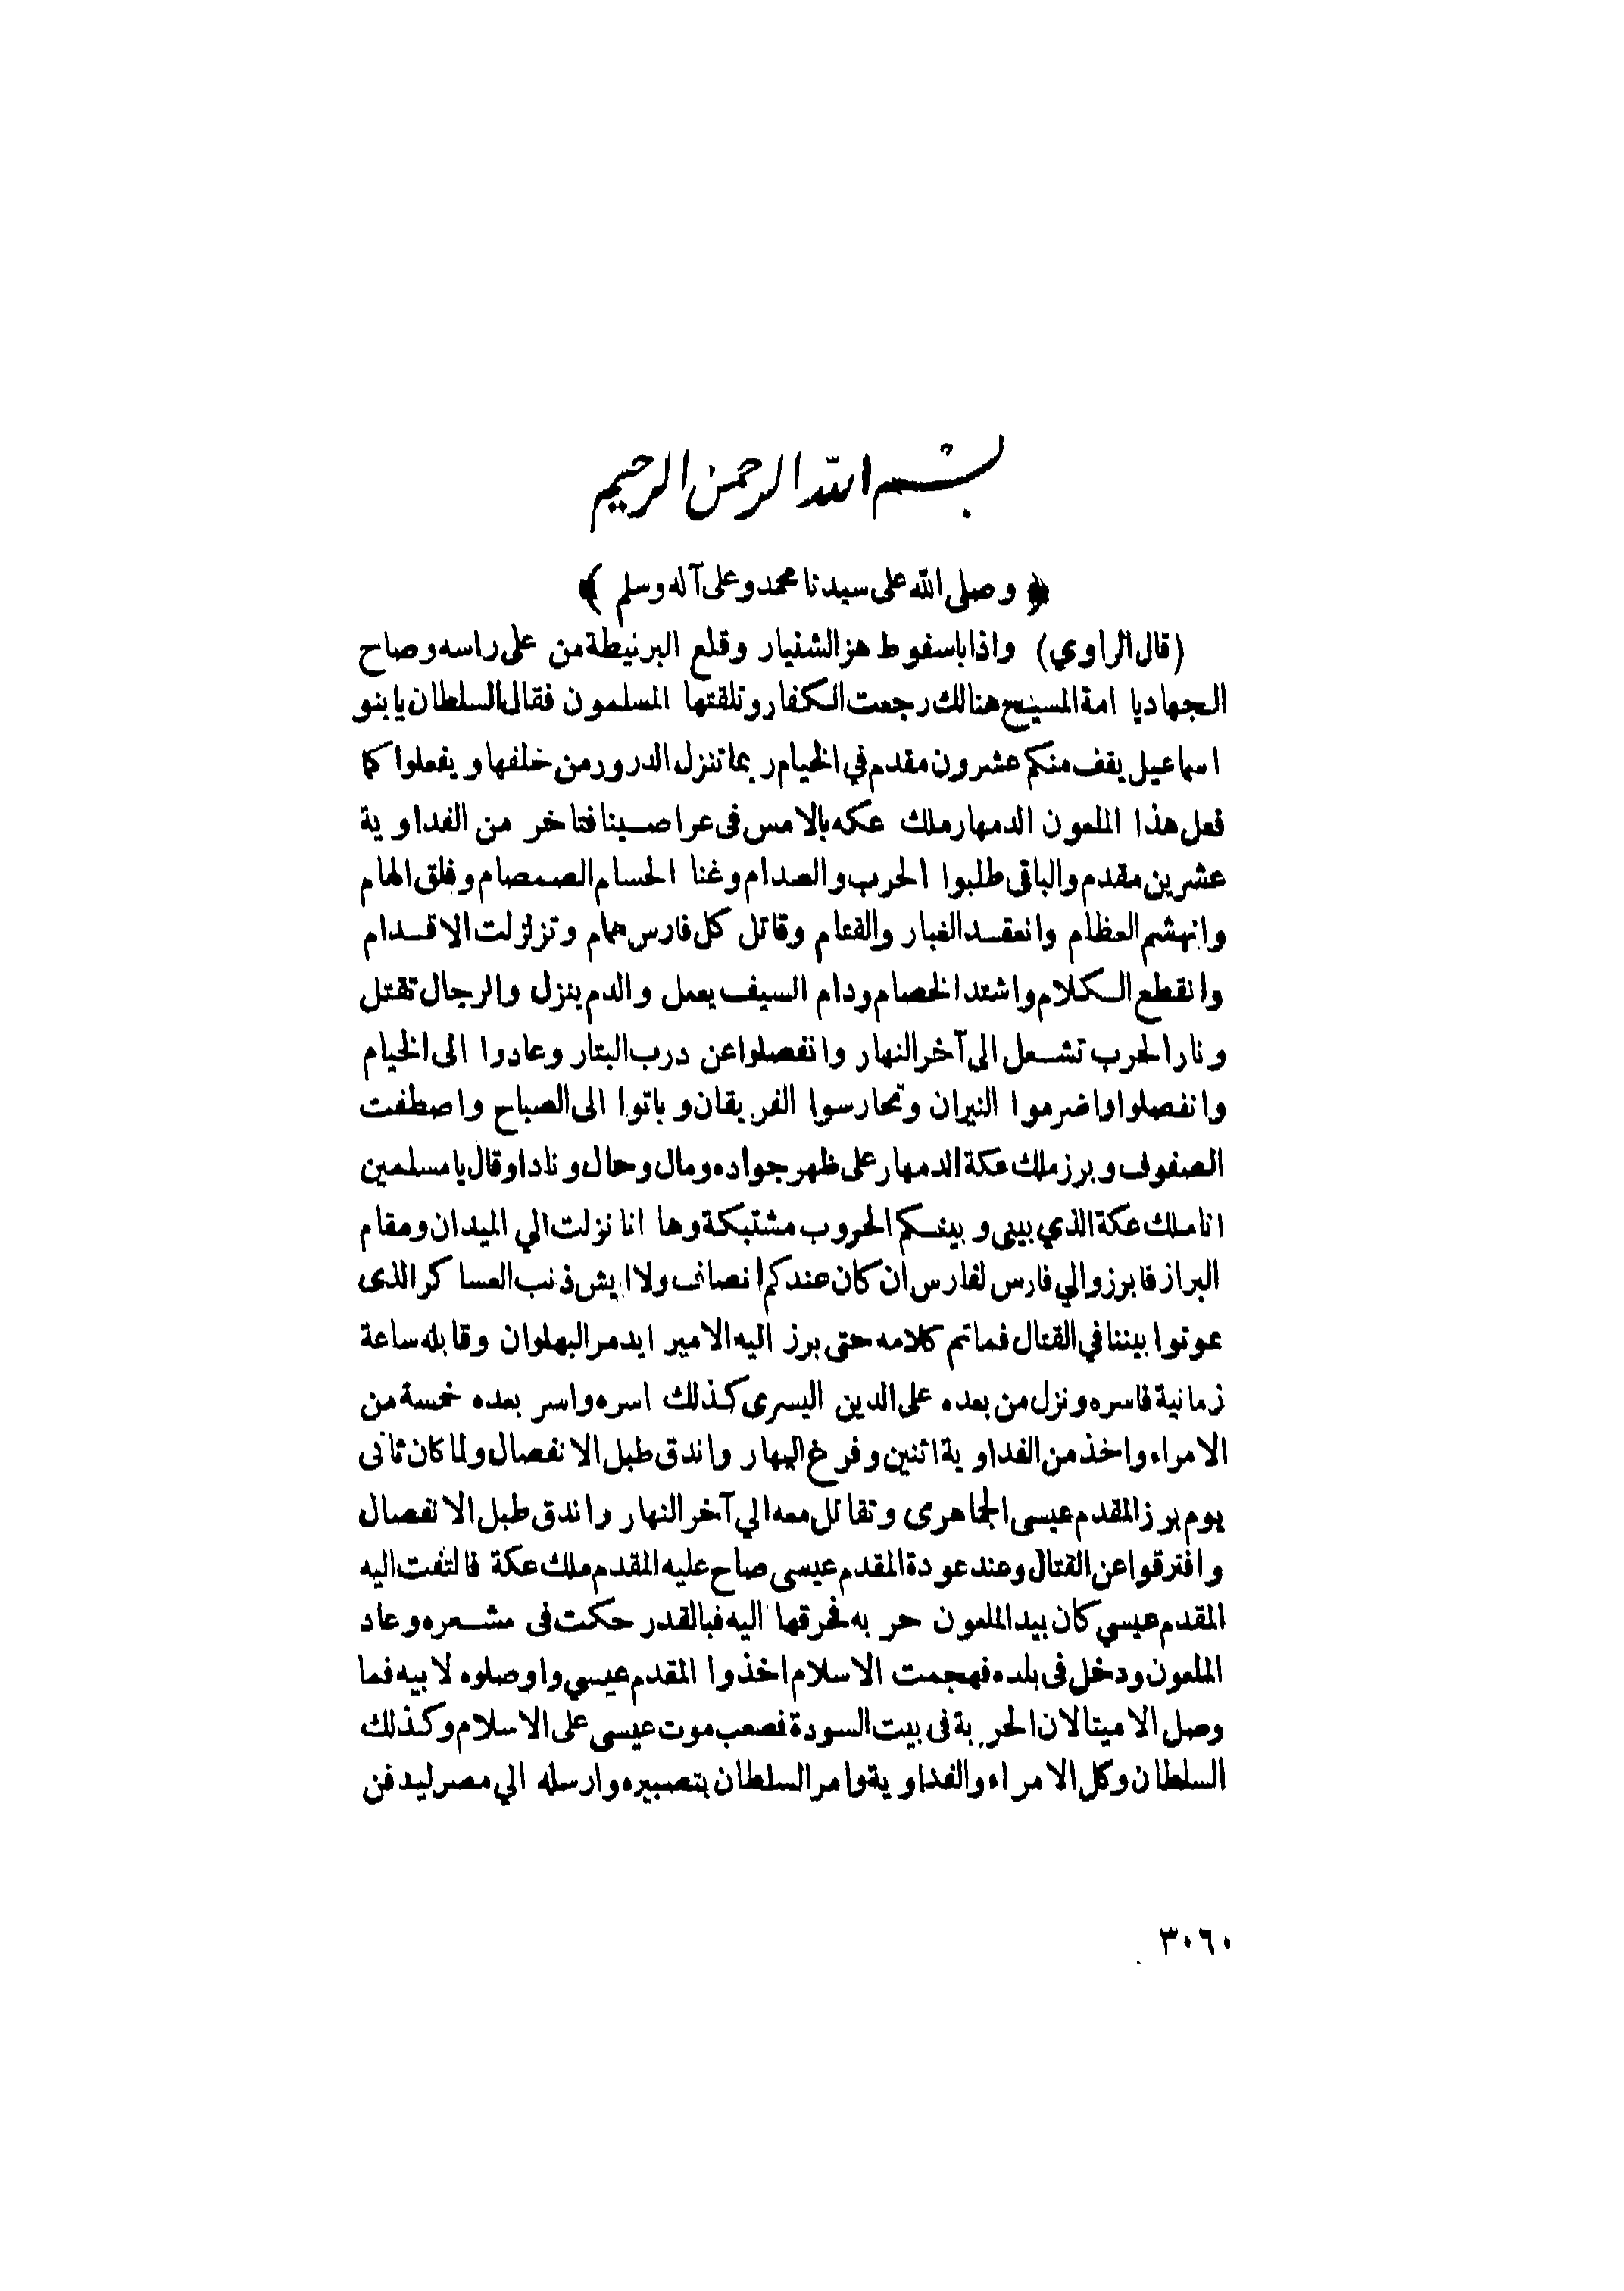 بسم الله الرحمن الرحيم
﴿ وصلى الله على سيدنا محمد وعلى آله وسلم ﴾
(قال الراوي) واذا باسفوط هز الشنيار وقلع البرنيطة من على راسه وصاح
الجهاد يا امة المسيح هنالك رجعت الكفار وتلقتها المسلمون فقال السلطان يا بنو
اسماعيل يقف منكم عشرون مقدم في الخيام ربما تنزل الدرور من خلفها ويفعلوا كما
فعل هذا الملعون الدمهار ملك عكه بالامس فى عراصينا فتاخر من الفداوية
عشرين مقدم والباقى طلبوا الحرب والصدام وغنا الحسام الصمصام وفلق الهام
وانهشم العظام وانعقد الغبار والقتام وقاتل كل فارس همام وتزلزلت الاقدام
وانقطع الكلام واشتد الخصام ودام السيف يعمل والدم ينزل والرجال تقتل
ونار الحرب تشعل الى آخر النهار وانفصلوا عن درب البتار وعادوا الى الخيام
وانفصلوا واضرموا النيران وتحارسوا الفريقان وباتوا الى الصباح واصطفت
الصفوف وبرز ملك عكة الدمهار على ظهر جواده ومال وحال ونادا وقال يا مسلمين
انا ملك عكة الذي بينى وبينكم الحروب مشتبكة وها انا نزلت الي الميدان ومقام
البراز فابرزوا لي فارس لفارس ان كان عندكم انصاف ولا ايش ذنب العساكر الذى
عوتوا بيننا في القتال فما تم كلامه حتى برز اليه الامير ايدمر البهلوان وقابله ساعة
زمانية فاسره ونزل من بعده على الدين اليسرى كذلك اسره واسر بعده خمسة من
الامراء واخذ من الفداوية اثنين وفرغ النهار واندق طبل الانفصال ولما كان ثانى
يوم برز المقدم عيسى الجماهرى وتقاتل معه الي آخر النهار واندق طبل الانفصال
وافترقوا عن القتال وعند عودة المقدم عيسى صاح عليه المقدم ملك عكة فالتفت اليه
المقدم عيسي كان بيد الملعون حربه فحرقها اليه فبالقدر حكت فى مشعره وعاد
الملعون ودخل فى بلده فهجمت الاسلام اخذوا المقدم عيسي واوصلوه لابيه فما
وصل الا ميتا لان الحربة فى بيت السودة فصعب موت عيسى على الاسلام وكذلك
السلطان وكل الامراء والفداوية وامر السلطان بتصبيره وارسله الي مصر ليدفن
٣٠٦٠